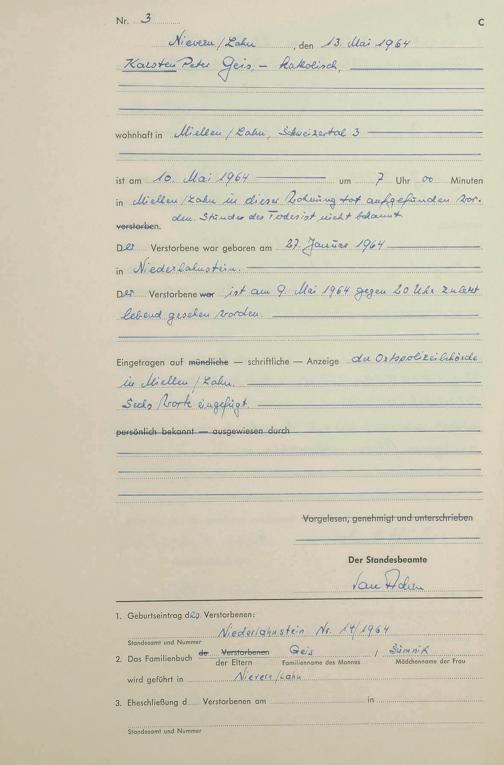 Nr. 3
C
Nievern/Lahn, den 13. Mai 1964
Karsten Peter Geis, – katholisch,
wohnhaft in Miellen/Lahn, Schweizertal 3
ist am 10. Mai 1964 um 7 Uhr 00 Minuten
in Miellen/Lahn in dieser Wohnung tot aufgefunden wor-
den. Stunde des Todes ist nicht bekannt
verstorben.
Der Verstorbene war geboren am 27. Januar 1964
in Niederlahnstein.
Der Verstorbene war ist am 9. Mai 1964 gegen 20 Uhr zuletzt
lebend gesehen worden.
Eingetragen auf mündliche — schriftliche — Anzeige der Ortspolizeibehörde
in Miellen/Lahn.
Sechs Worte eingefügt.
persönlich bekannt — ausgewiesen durch
Vorgelesen, genehmigt und unterschrieben
Der Standesbeamte
1. Geburtseintrag des Verstorbenen:
Niederlahnstein Nr. 14/1964
Standesamt und Nummer
2. Das Familienbuch de Verstorbenen Geis /
der Eltern Familienname des Mannes Mädchenname der Frau
wird geführt in Nievern/Lahn
3. Eheschließung d Verstorbenen am in
Standesamt und Nummer